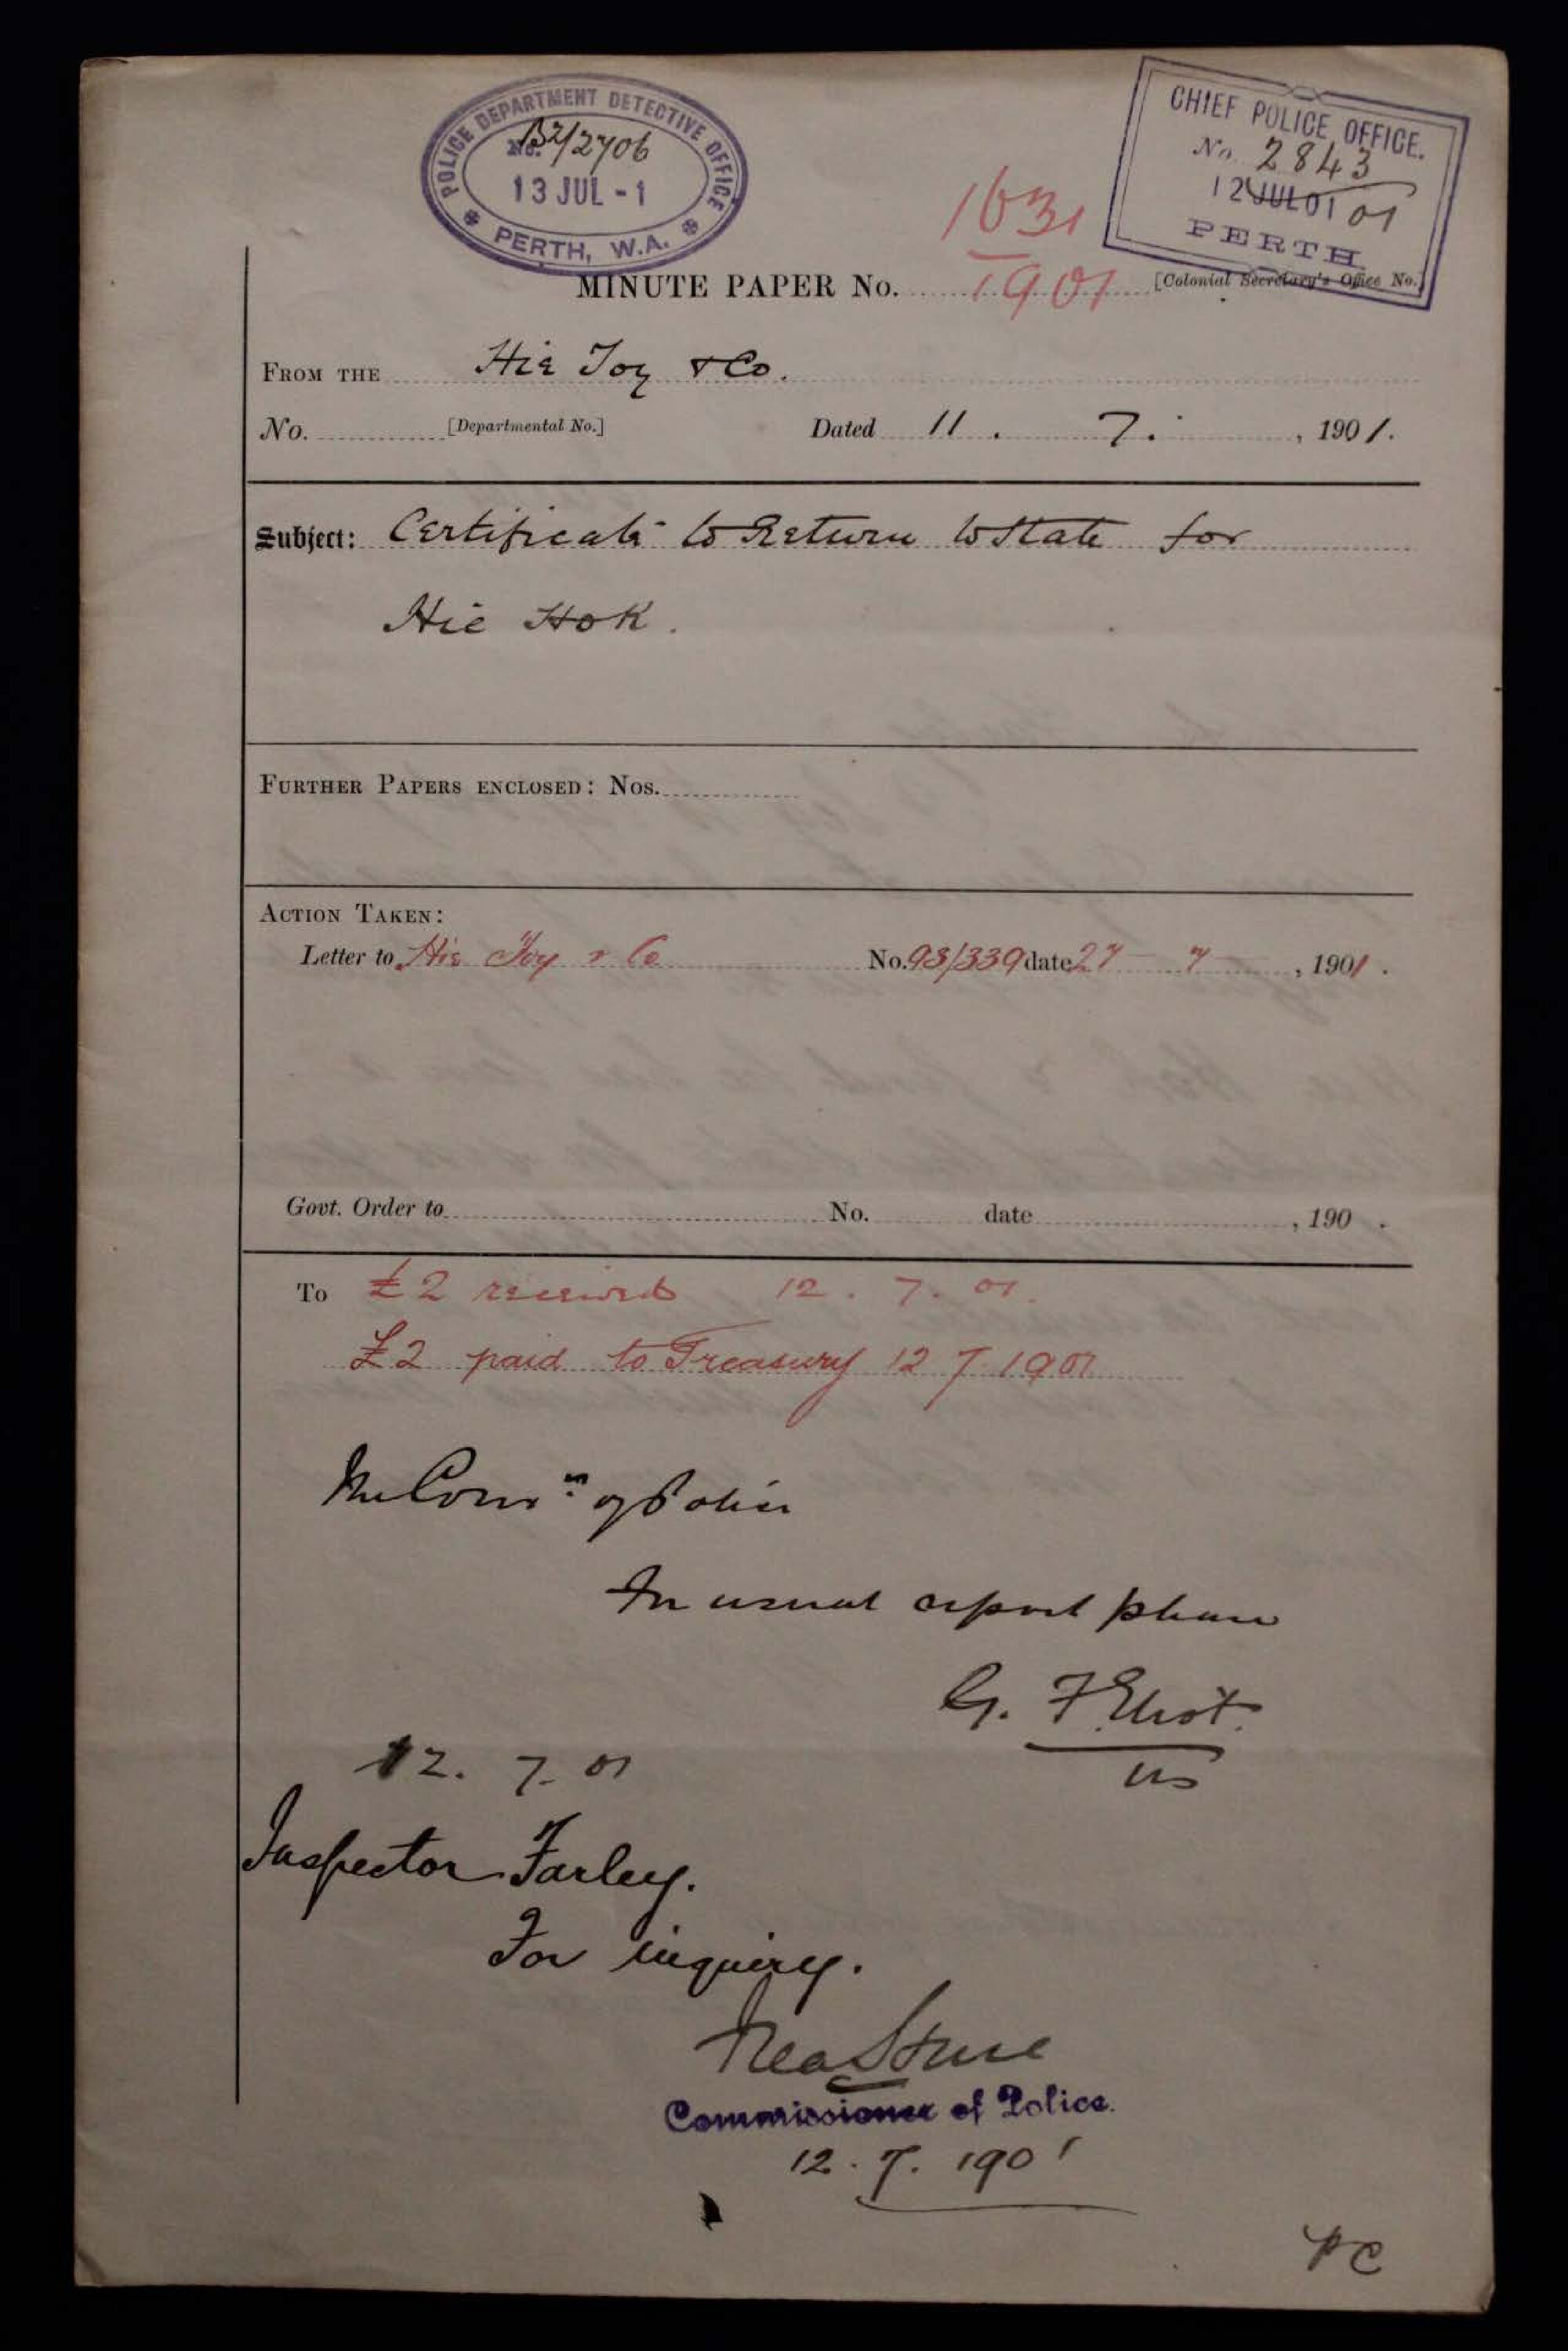 POLICE DEPARTMENT DETECTIVE OFFICE
No. B2/2706
13 JUL - 1
PERTH, W.A.
CHIEF POLICE OFFICE.
No. 2843
12 JUL 01 01
PERTH
1631
MINUTE PAPER No. 1901 [Colonial Secretary's Office No.]
FROM THE Hie Joy & Co.
No. [Departmental No.] Dated 11. 7. , 1901.
Subject: Certificate to Return to State for
Hie Hok.
FURTHER PAPERS ENCLOSED: Nos.
ACTION TAKEN:
Letter to Hie Joy & Co No. 93/339 date 27 7 , 1901.
Govt. Order to No. date , 190 .
To £2 received 12. 7. 01.
£2 paid to Treasury 12 7 1901
The Comr. of Police
For usual report please
G. F. Eliot.
US
12. 7. 01
Inspector Farley.
For inquiry.
Commissioner of Police.
12. 7. 1901
PC